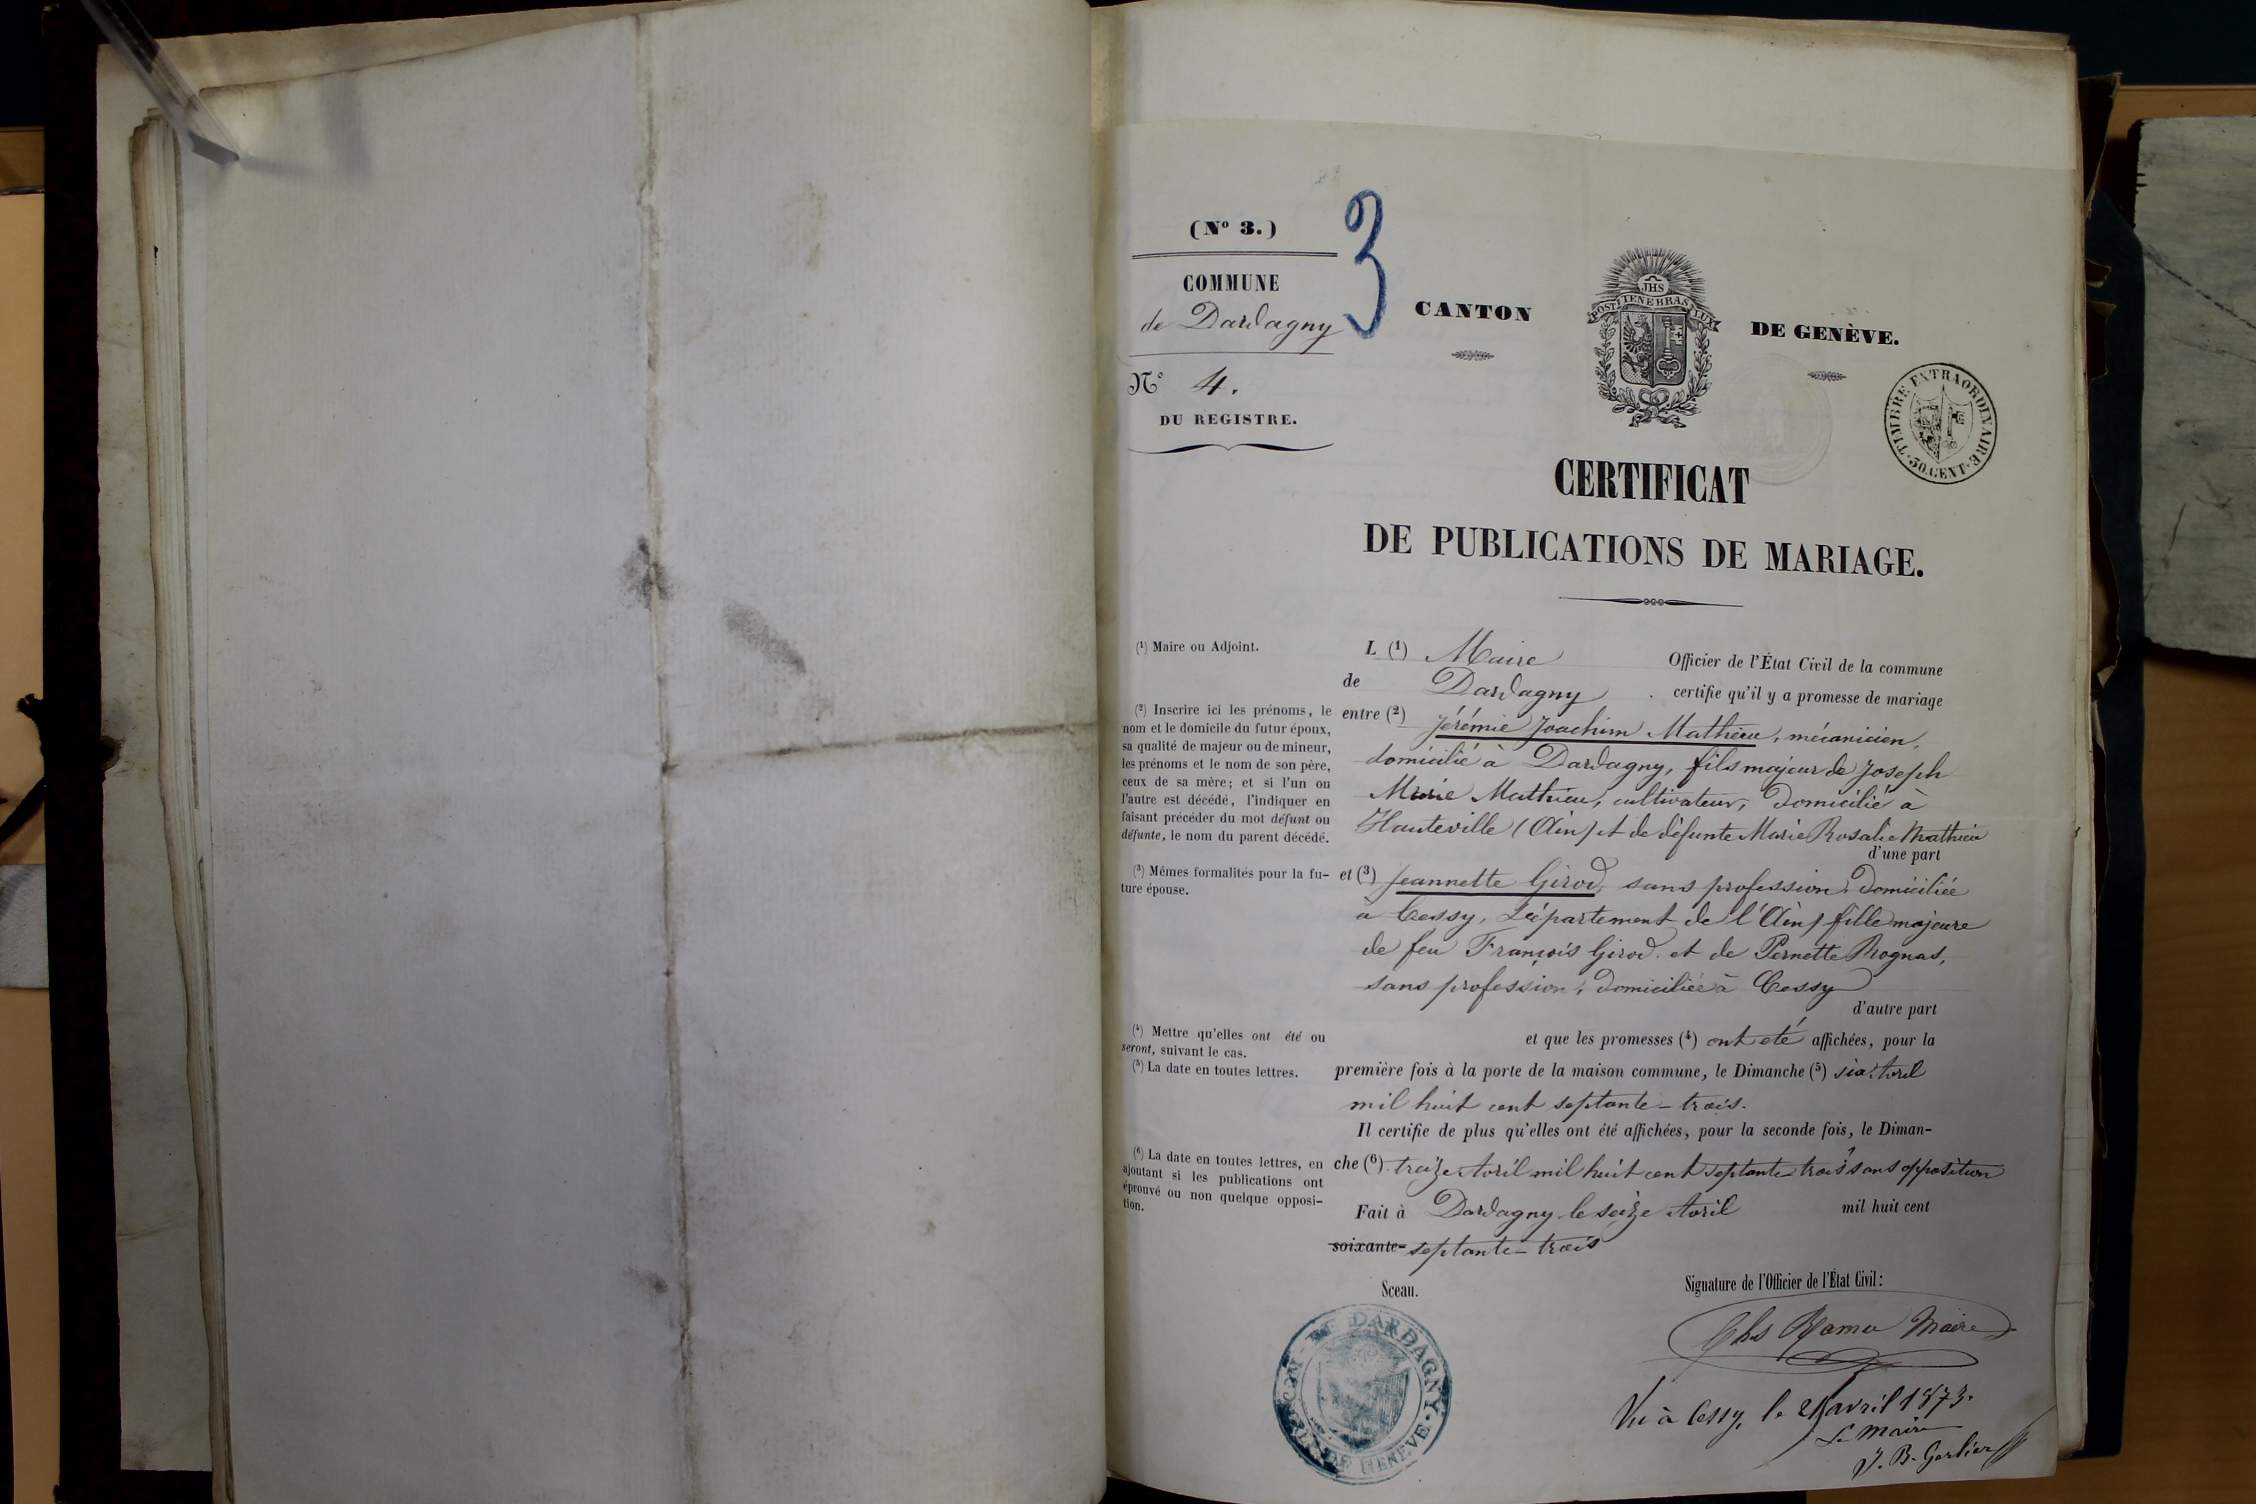 (Nº 3.)
3
COMMUNE
de Dardagny
Nº 4.
DU REGISTRE.
CANTON
JHS
POST TENEBRAS LUX
DE GENÈVE.
TIMBRE EXTRAORDINAIRE
50. CENT.
CERTIFICAT
DE PUBLICATIONS DE MARIAGE.
(1) Maire ou Adjoint.
(2) Inscrire ici les prénoms, le
nom et le domicile du futur époux,
sa qualité de majeur ou de mineur,
les prénoms et le nom de son père,
ceux de sa mère; et si l'un ou
l'autre est décédé, l'indiquer en
faisant précéder du mot défunt ou
défunte, le nom du parent décédé.
(3) Mêmes formalités pour la fu-
ture épouse.
(4) Mettre qu'elles ont été ou
seront, suivant le cas.
(5) La date en toutes lettres.
(6) La date en toutes lettres, en
ajoutant si les publications ont
éprouvé ou non quelque opposi-
tion.
L (1) Maire Officier de l'État Civil de la commune
de Dardagny certifie qu'il y a promesse de mariage
entre (2) Jérémie Joachim Mathieu, mécanicien,
domicilié à Dardagny, fils majeur de Joseph
Marie Mathieu, cultivateur, domicilié à
Hauteville (Ain) et de défunte Marie Rosalie Mathieu
d'une part
et (3) Jeannette Girod, sans profession, domiciliée
a Cessy, Département de l'Ain, fille majeure
de feu François Girod et de Pernette Rognas,
sans profession, domiciliée à Cessy
d'autre part
et que les promesses (4) ont été affichées, pour la
première fois à la porte de la maison commune, le Dimanche (5) six Avril
mil huit cent septante-trois.
Il certifie de plus qu'elles ont été affichées, pour la seconde fois, le Diman-
che (6) treize Avril mil huit cent septante-trois sans opposition
Fait à Dardagny le seize Avril mil huit cent
soixante- septante-trois
Sceau.
Signature de l'Officier de l'État Civil:
Chs Ramu Maire
DE DARDAGNY.
DE GENÈVE
Vu à Cessy, le 21 avril 1873.
Le Maire
J. B. Gerlier